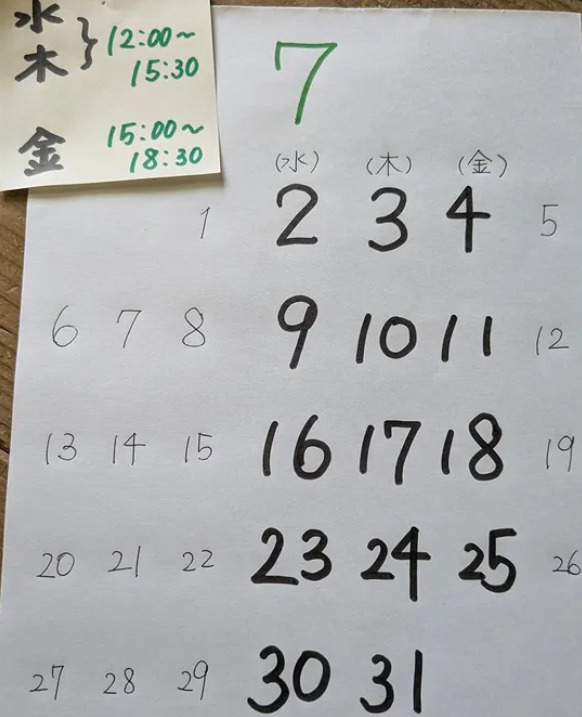 水 12:00~
木 15:30
金 15:00~
18:30
7
(水) (木) (金)
1 2 3 4 5
6 7 8 9 10 11 12
13 14 15 16 17 18 19
20 21 22 23 24 25 26
27 28 29 30 31